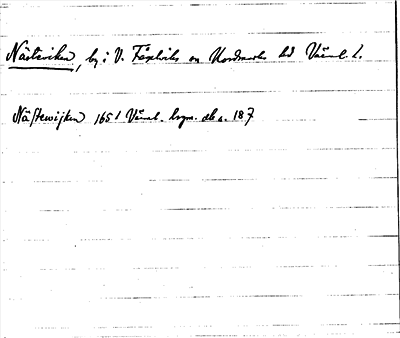 Nästeviken, by i V. Fågelviks sn Nordmarks hd Värml. l.
Näſtewijken 1651 Värml. 187